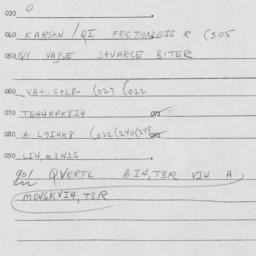 030 O
040 KARSTN / QI FRICTIONLESS R (305
050 QY VAJSE S+VARCE BITER
060 VA+.. S+L8~ (027 (022
070 TE44RPKBI4
080 A..L7I4K8 (022(240(248
090 LI4, M3N3S
901 QVERTL BI4, T3R VI4 A
MO4SKVI4, T3R